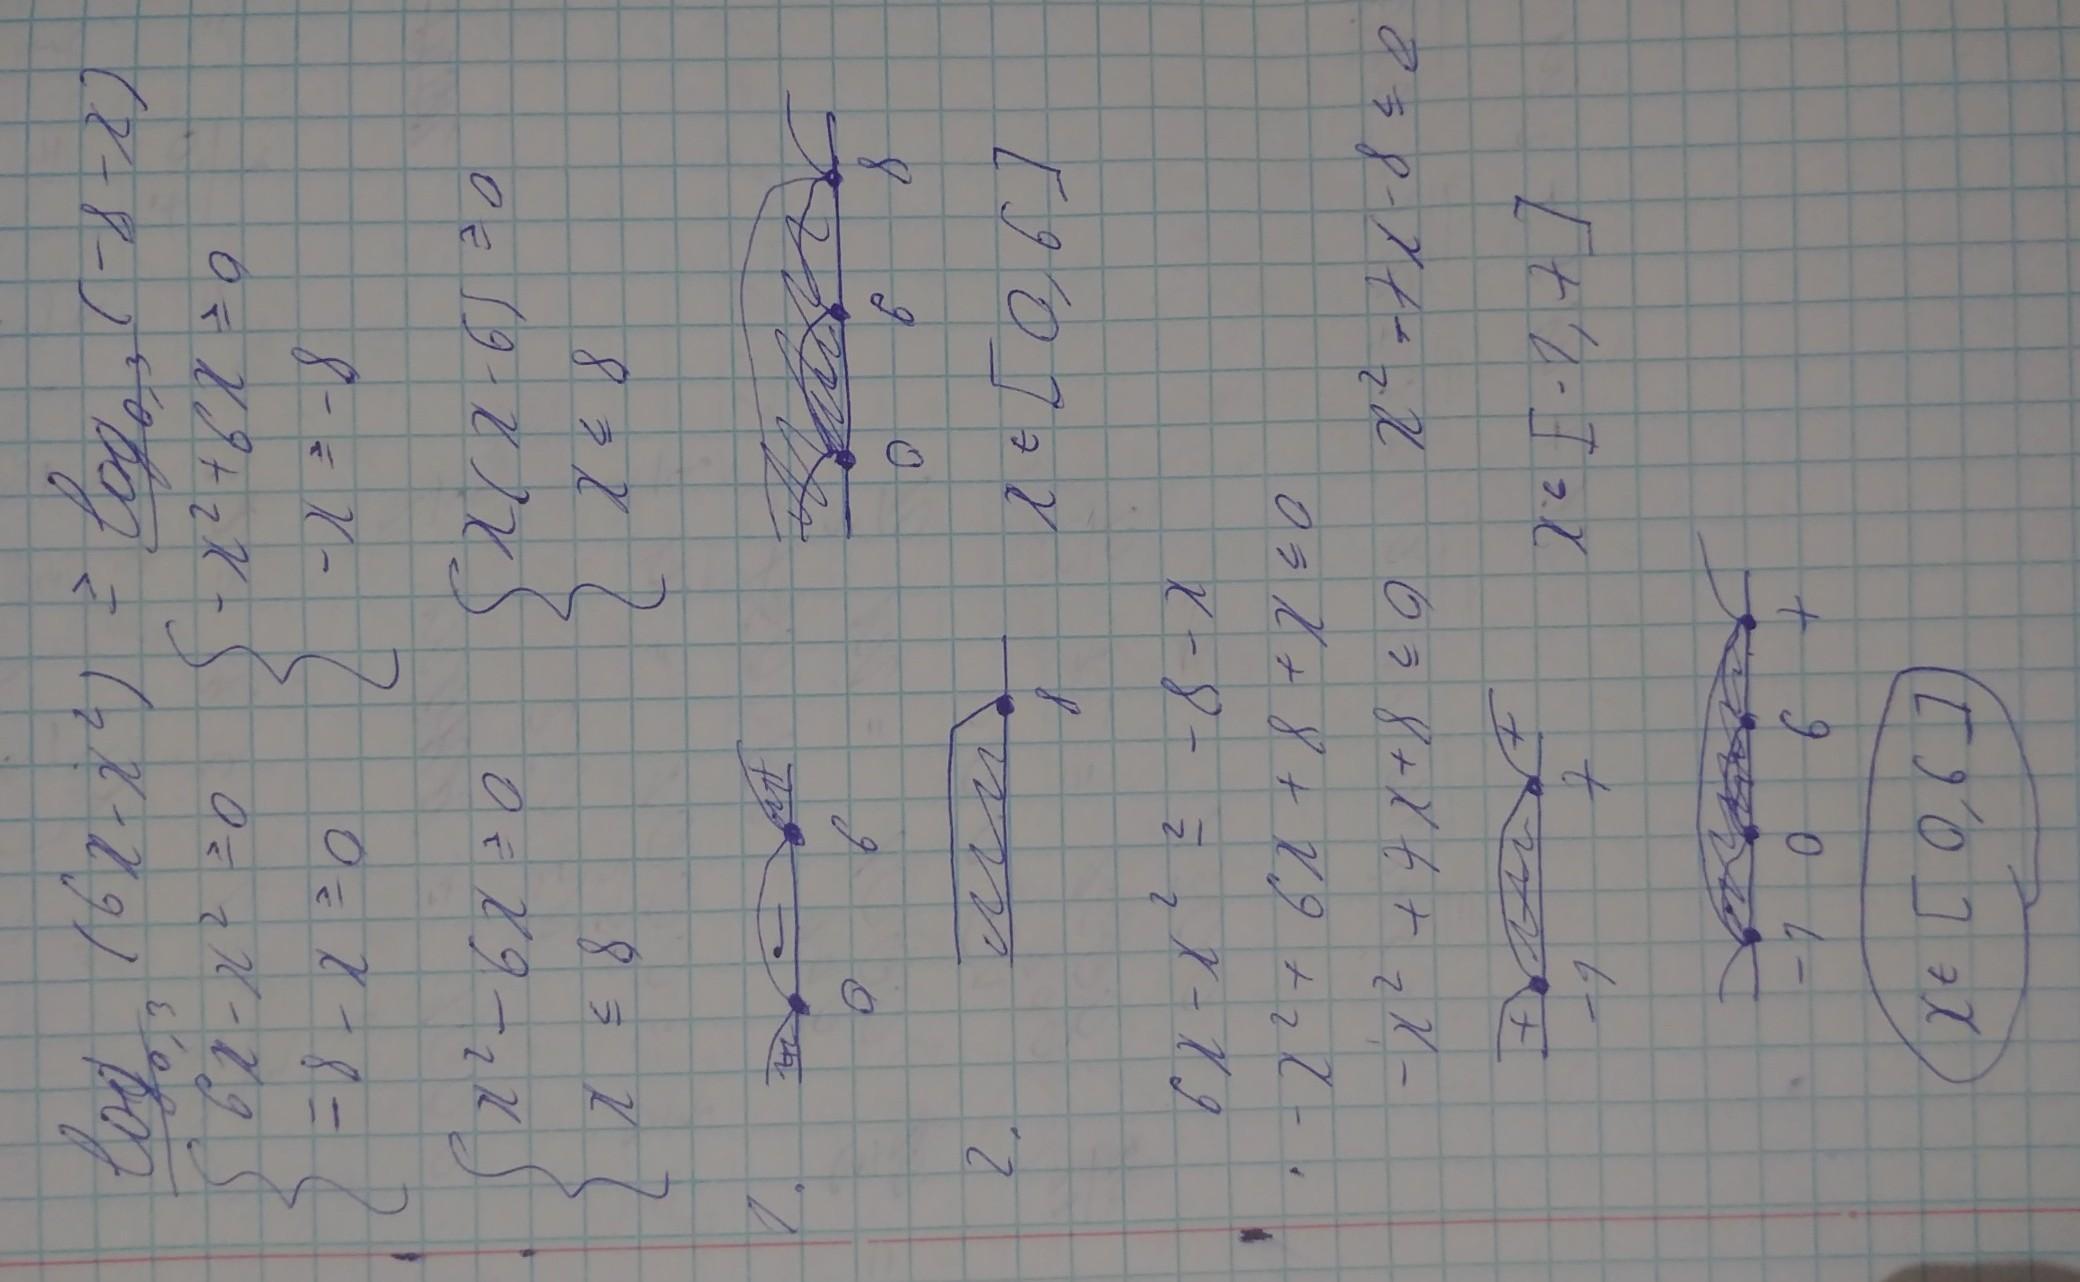 log₀,₃ (6x-x²) ≥ log₀,₃ (-8-x)
{ 6x-x² ≥ 0 { -x²+6x ≥ 0
= 8-x ≥ 0 -x ≥ -8
{ x²-6x ≥ 0 { x(x-6) ≥ 0
x ≤ 8 x ≤ 8
1. + - + 
0 6 0 6 8
2. x ∈ [0,6]
8
6x-x² ≥ -8-x
-x²+6x+8+x ≤ 0
-x²+7x+8 ≤ 0 x²-7x-8 ≤ 0
+ +
-1 7 x ∈ [-1,7]
-1 0 6 7
x ∈ [0,6]